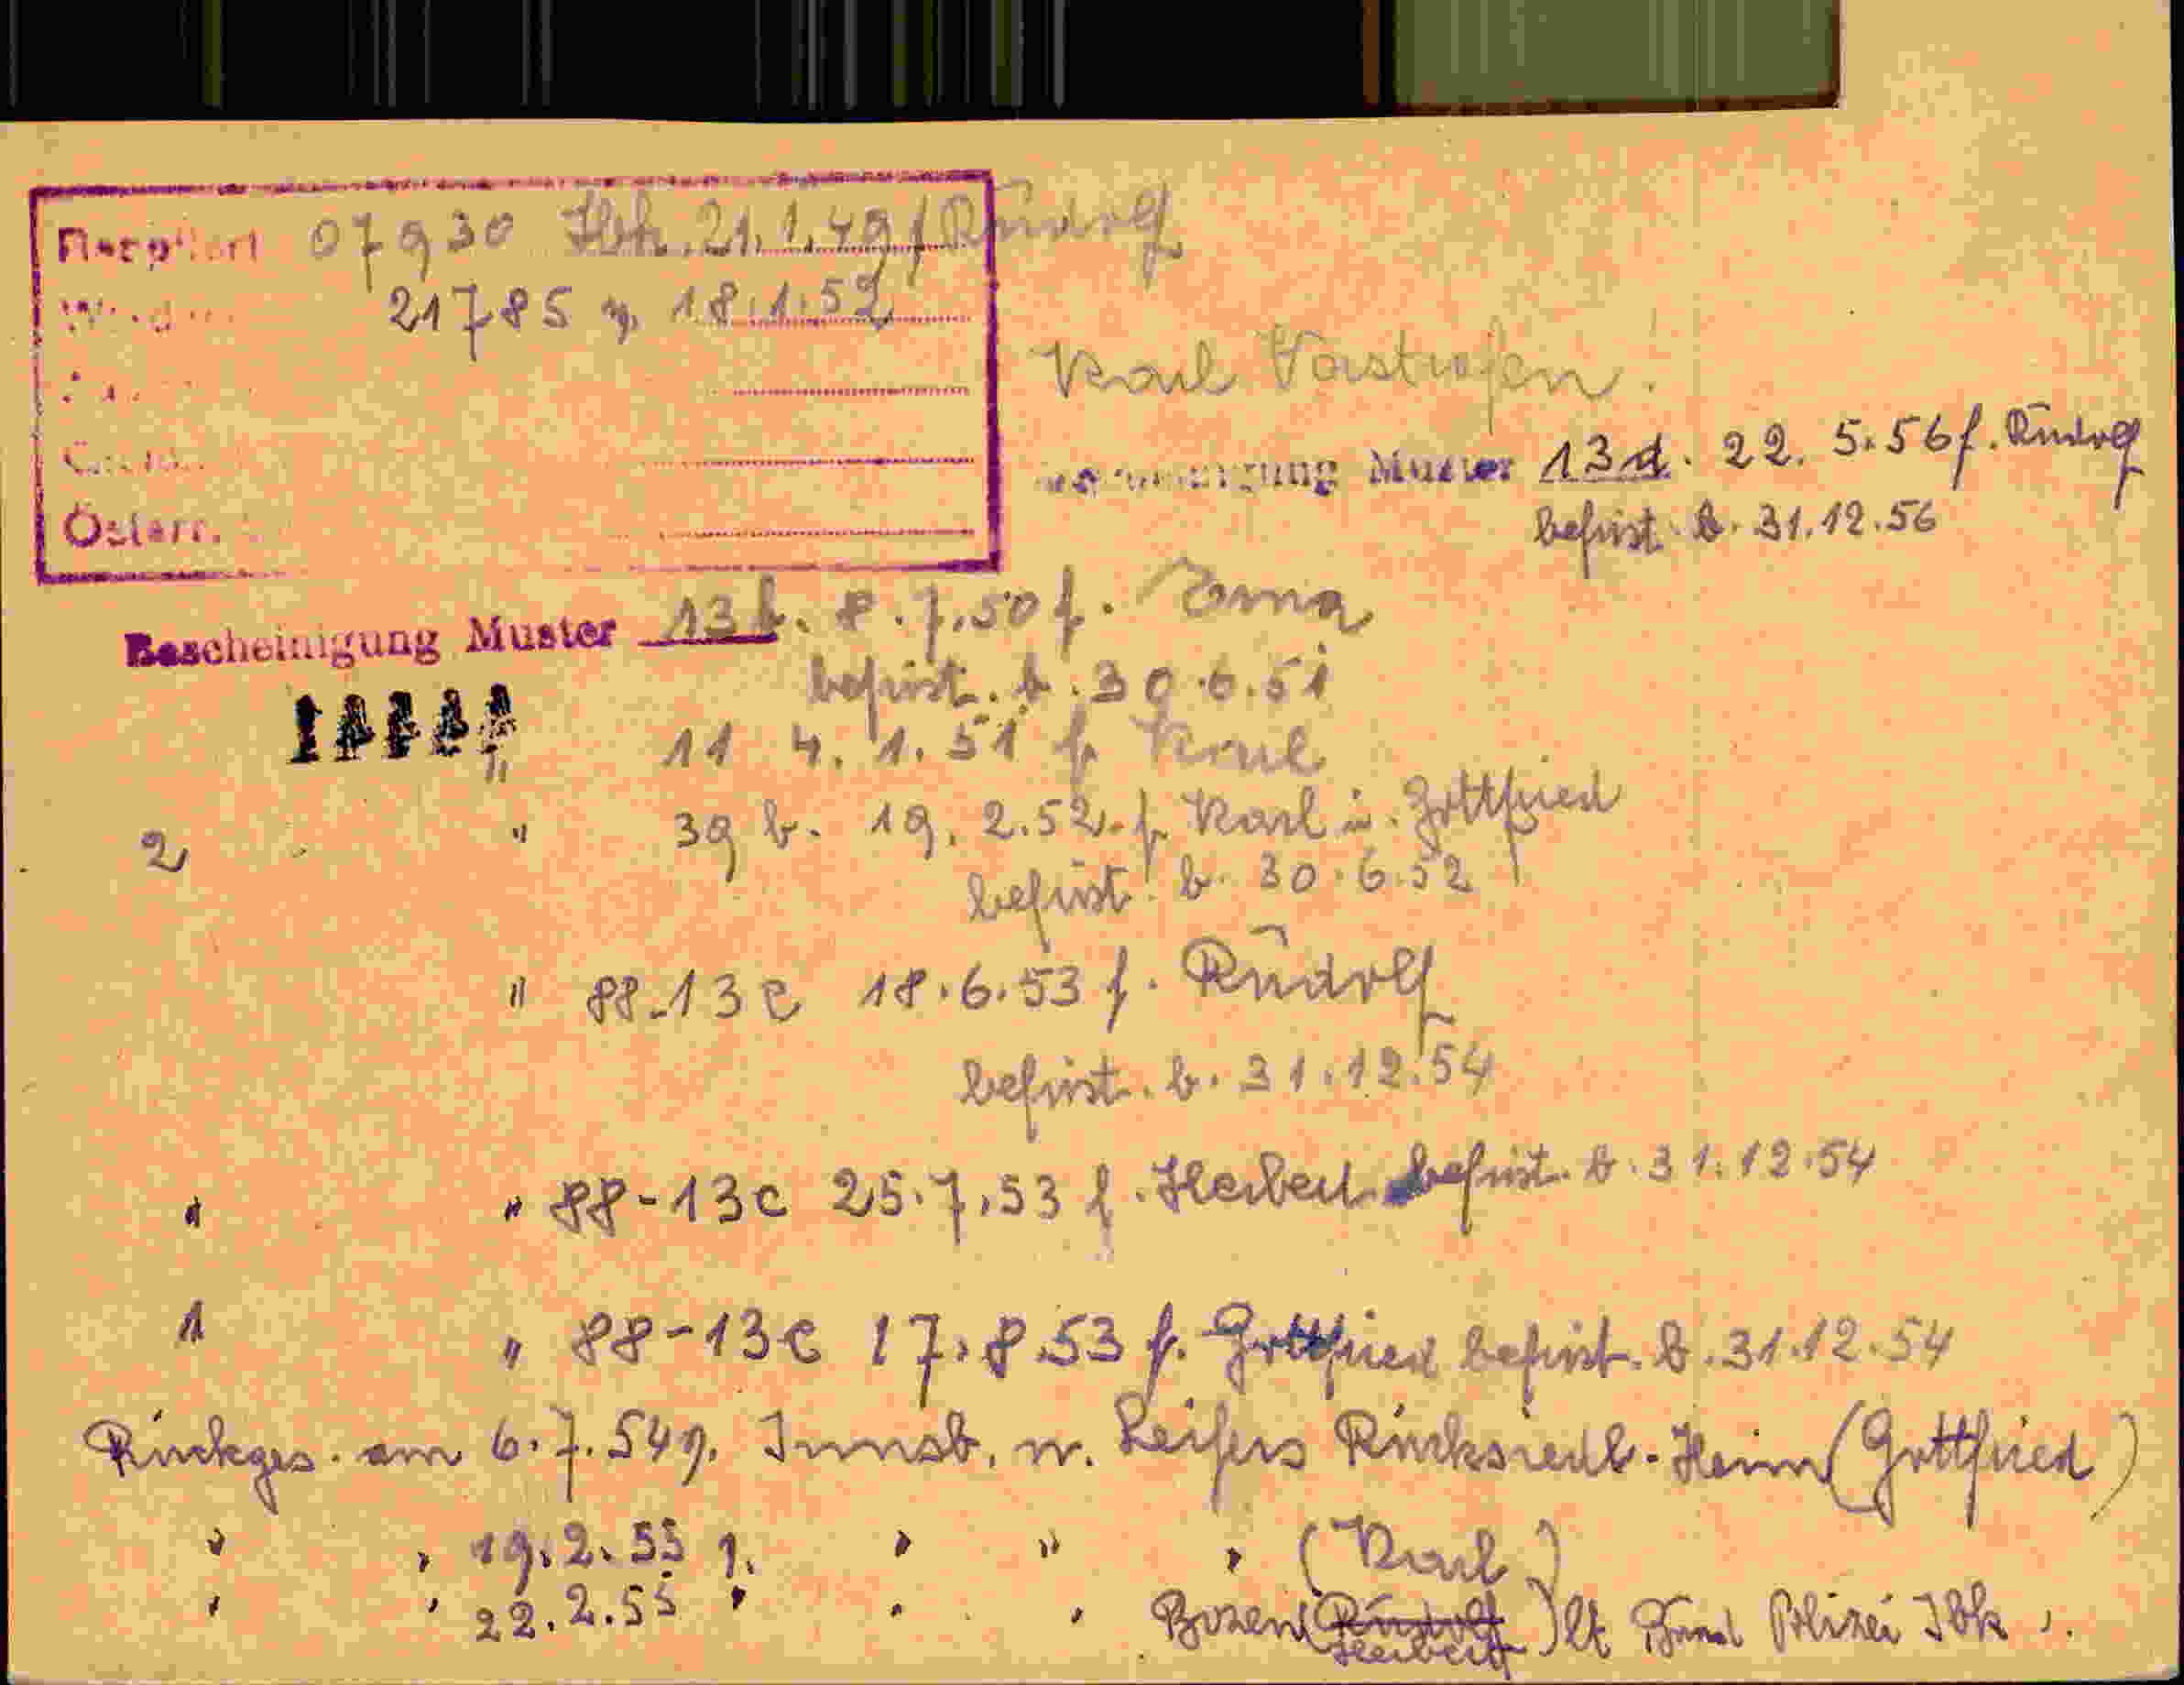 07930 Ibk. 21.1.49 f Rudolf
21785 " 18.1.52
Österr.
Karl Vorstrafen!
Muster 13d. 22. 5. 56 f. Rudolf
befrist. b. 31.12.56
Bescheinigung Muster 13b. 8.7.50 f. Erna
befrist. b. 30.6.51
" 11 4. 1. 51 f Karl
2 " 39 b. 19. 2. 52. f. Karl u. Gottfried
befrist. b. 30.6.52
" 88-13c 18.6.53 f. Rudolf
befrist. b. 31.12.54
" " 88-13c 25.7.53 f. Herbert befrist. b. 31.12.54
1 " 88-13c 17.8.53 f. Gottfried befrist. b. 31.12.54
Rückges. am 6.7.54 v. Innsb. n. Leifers Rücksiedl.-Heim (Gottfried)
" " 19.2.55 v. " " " (Karl)
" " 22.2.55 " " " Bozen (Rudolf Herbert) lt Bund Polizei Ibk.